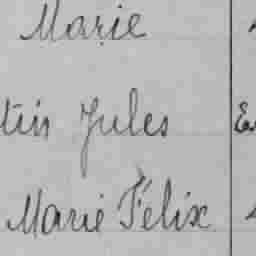 Marie
tin Jules
Marie Félix